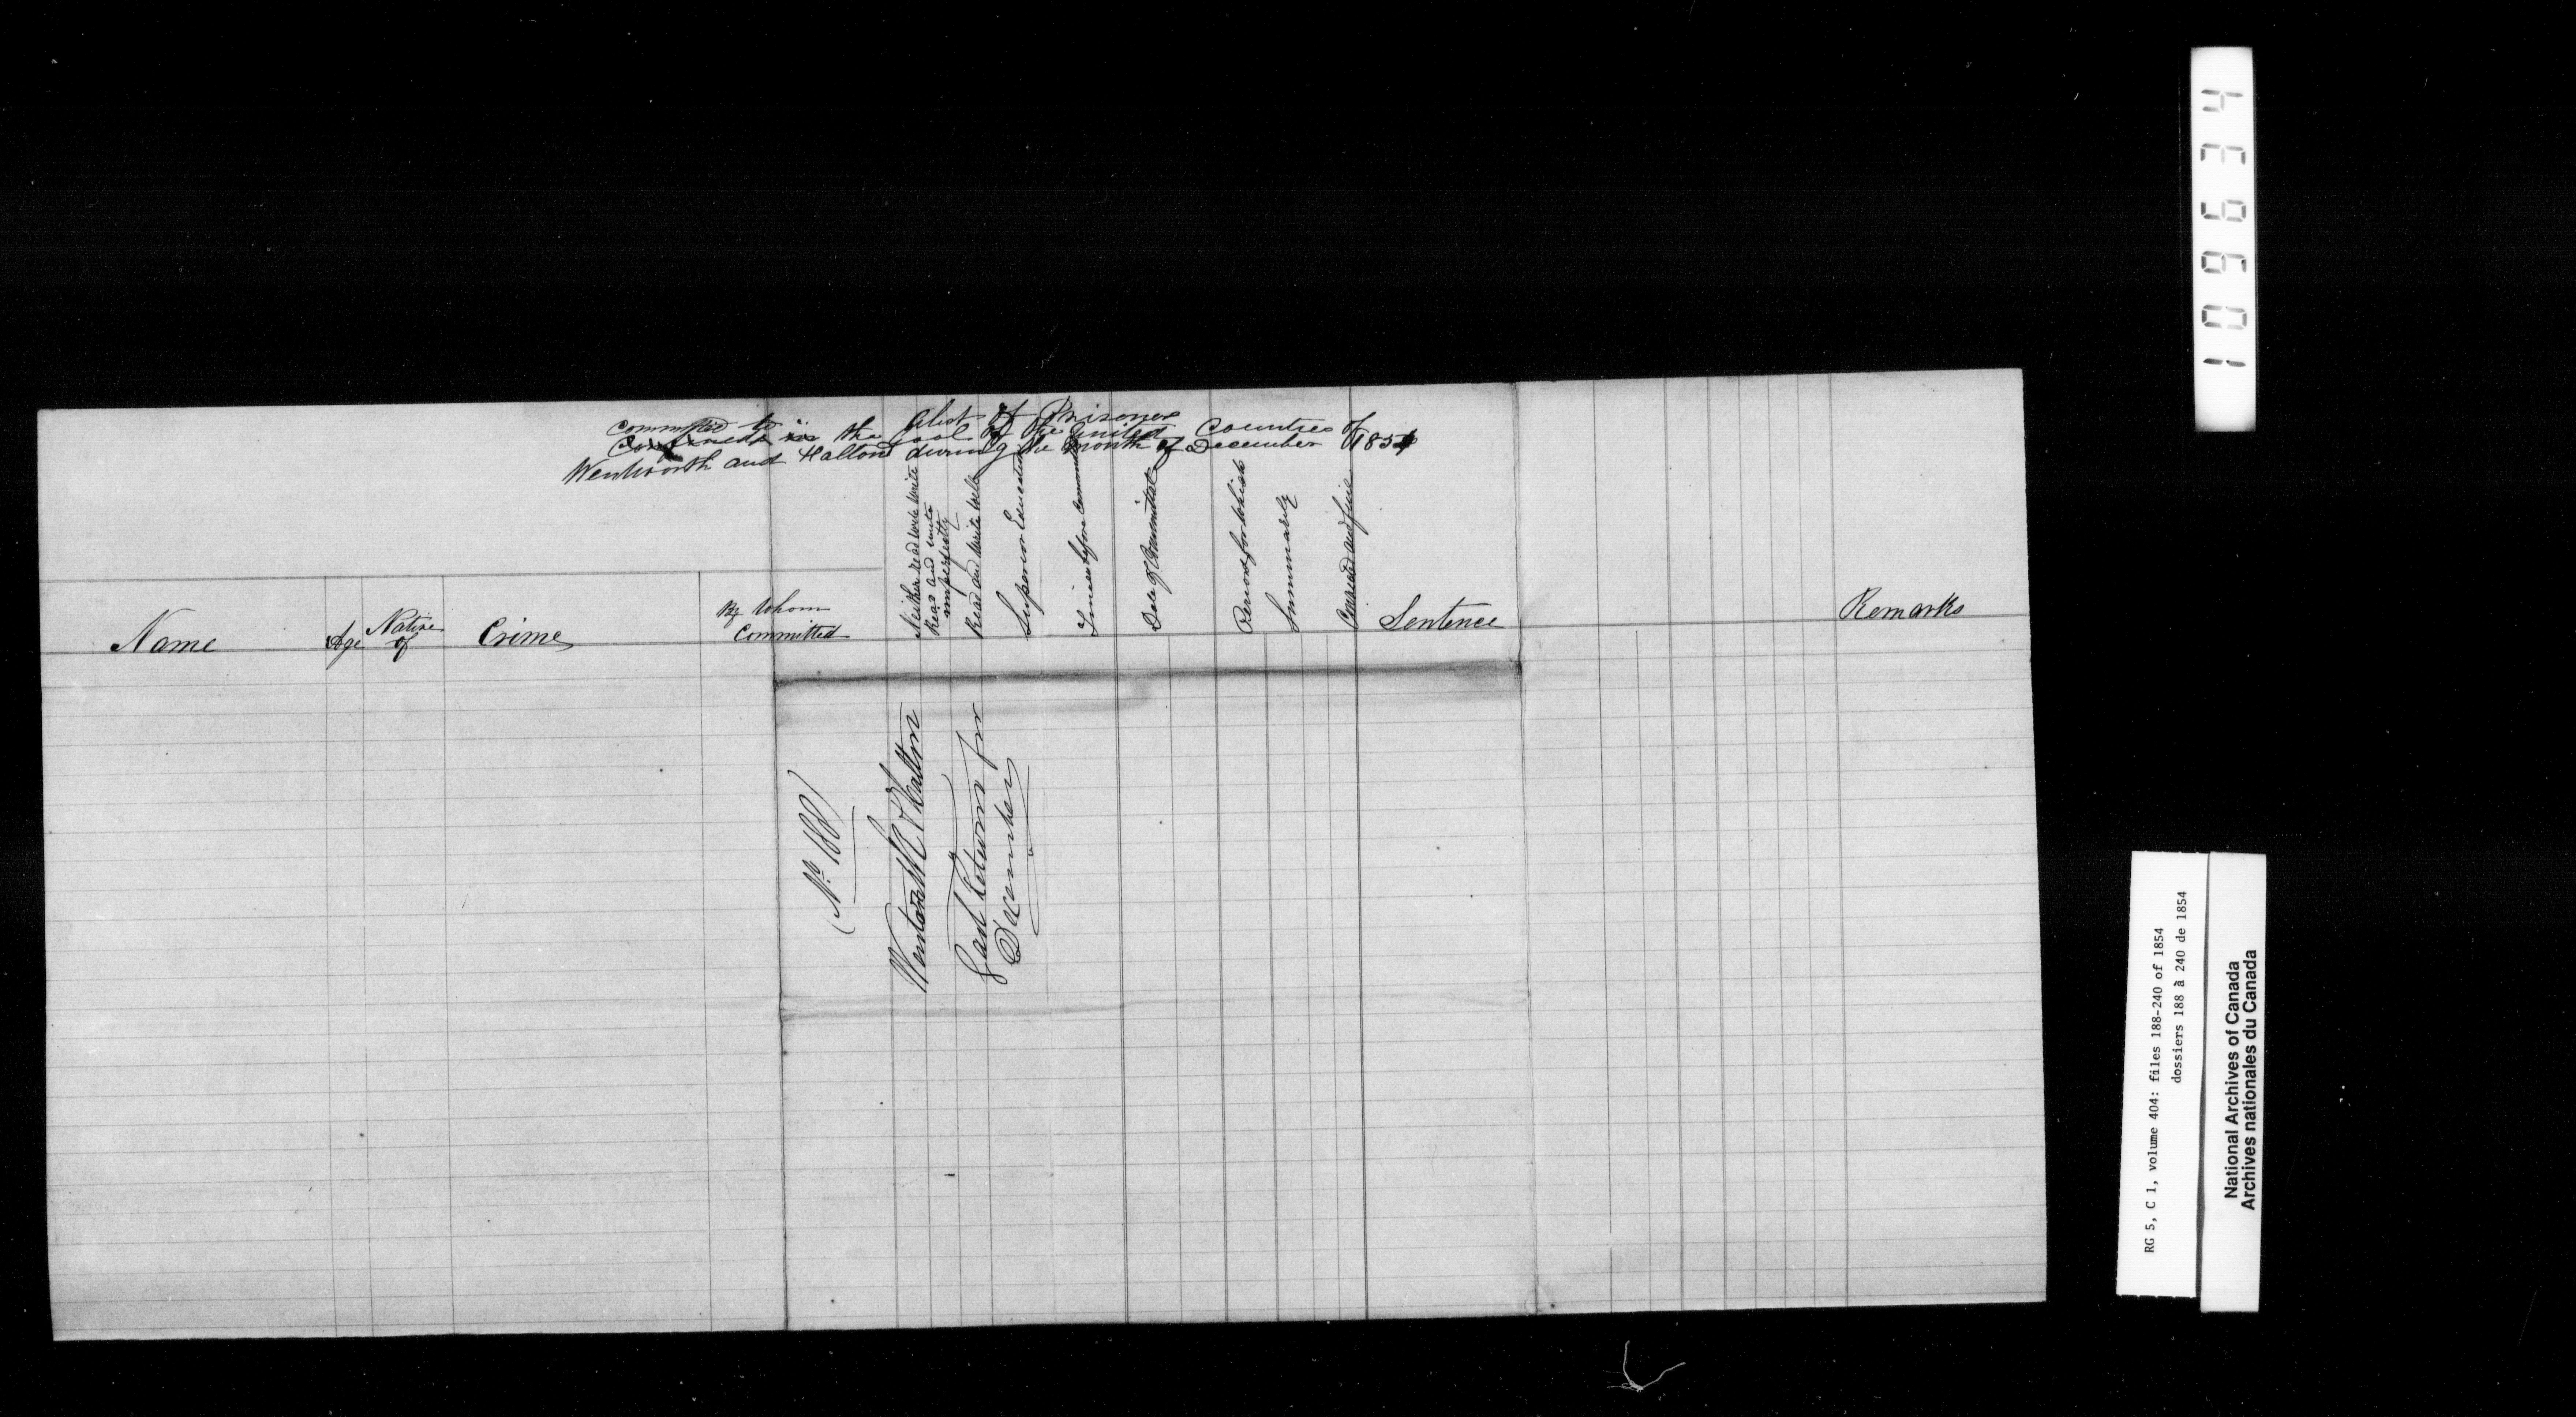 A list of Prisoners
committed to
Confined in the gaol of the United Counties of
Wentworth and Halton during the month of December 1854
Name
Age
Native
of
Crime
By Whom
Committed
Neither read nor write
Read and write
imperfectly
Read and write well
Superior Education
Times before committed
Date of Committal
Period for which
Summarily
Sentence
Remarks
(No 188)
Wentworth & Halton
Gaol Return for
December
109634
RG 5, C 1, volume 404: files 188-240 of 1854
dossiers 188 à 240 de 1854
National Archives of Canada
Archives nationales du Canada